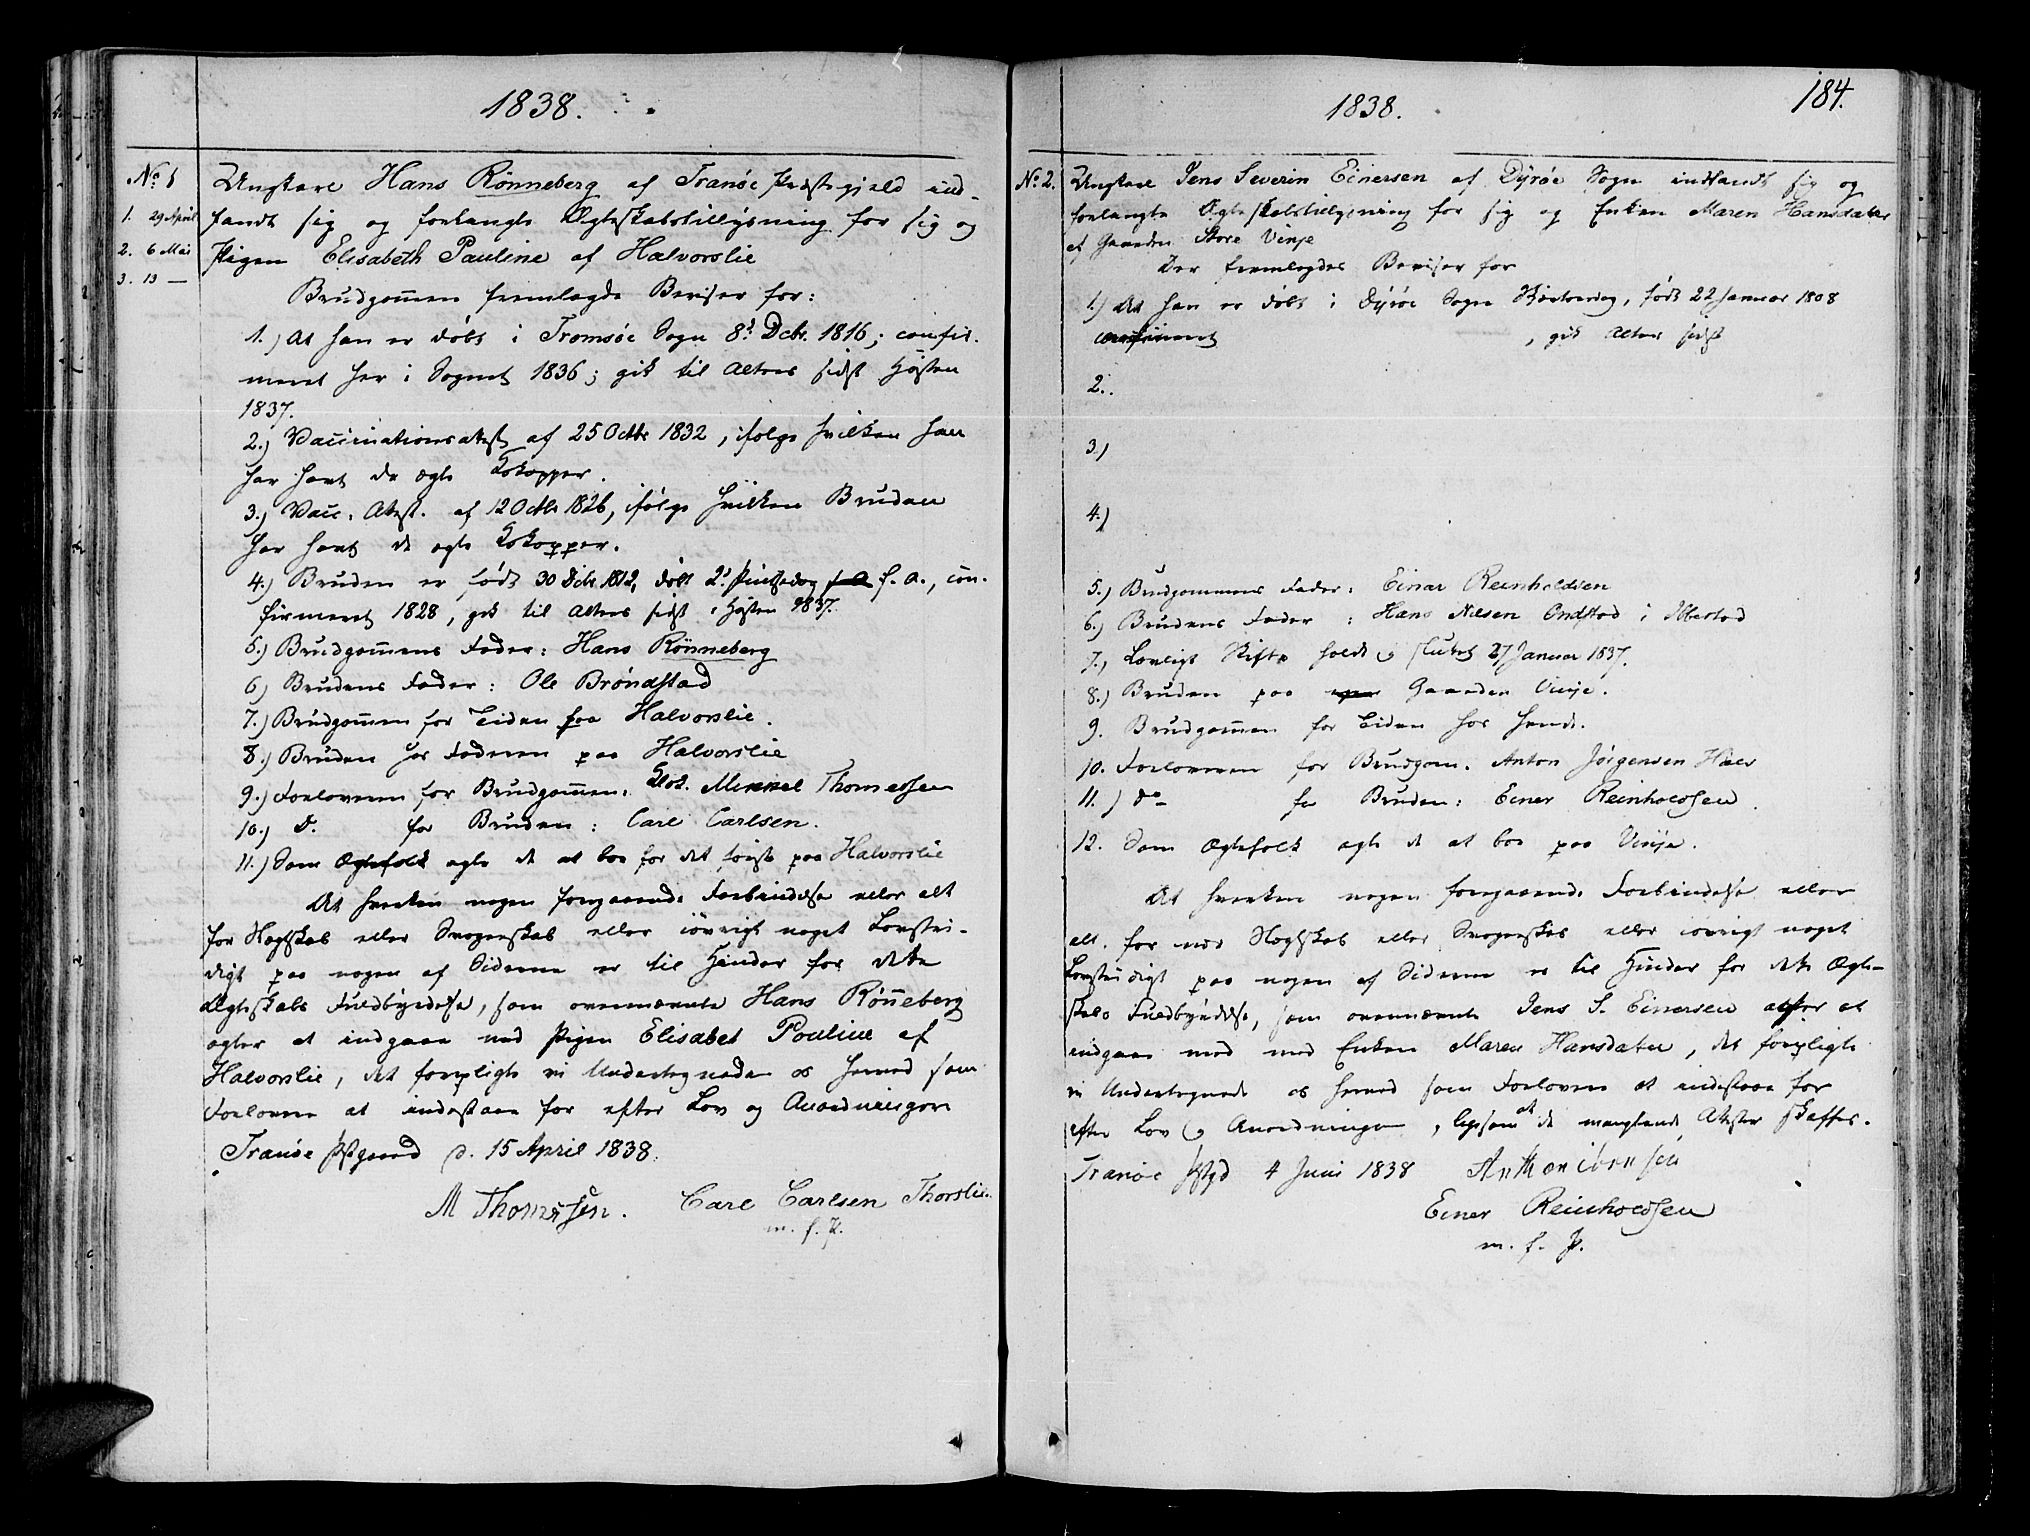 1838.
No 1
1. 29 April
2. 6 Mai
3. 13 —
Ungkarl Hans Rönneberg af Tranöe Præstegjeld ind-
fandt sig og forlangte Ægteskabstillysning for sig og
Pigen Elisabeth Pauline af Halvorslie
Brudgommen fremlagde Beviser for:
1.) At han er döbt i Tromsöe Sogn 8d Dcbr. 1816; confir-
meret her i Sognet 1836; gik til Alters sidst Høsten
1837.
2.) Vaccinationsattest af 25 Octbr 1832, ifølge hvilken han
har havt de ægte Kokopper.
3.) Vacc. Attest. af 12 Octbr 1826, ifølge hvilken Bruden
har havt de ægte Kokopper.
4.) Bruden er født 30 Dcbr. 1812, döbt 2d Pintsedag f. a., con-
firmeret 1828, gik til Alters sidst i Høsten 1837.
5.) Brudgommens Fader: Hans Rönneberg
6) Brudens Fader: Ole Bröndstad
7.) Brudgommen for Tiden paa Halvorslie.
8.) Bruden hos Faderen paa Halvorslie
9.) Forloveren for Brudgommen: Klok. Mikkel Thomessen
10.) D. for Bruden: Carl Carlsen.
11.) Som Ægtefolk agte de at boe for det første paa Halvorslie
At hverken nogen foregaaende Forbindelse eller alt
for Nærskab eller Svogerskab eller iøvrigt noget Lovstri-
digt paa nogen af Siderne er til Hinder for dette
Ægteskabs Fuldbyrdelse, som ovennævnte Hans Rönneberg
agter at indgaae med Pigen Elisabet Pouline af
Halvorslie, det forpligte vi Undertegnede os herved som
Forlovere at indestaae for efter Lov og Anordninger
Tranöe Pstgaard d. 15 April 1838.
M Thomesen. Carl Carlsen Thorslie.
m. f. P.
184.
1838.
No 2.
Ungkarl Jens Severin Einersen af Dyröe Sogn indfandt sig og
forlangte Ægteskabstillysning for sig og Enken Maren Hansdatter
af Gaarden Store Vinje
Der fremlagdes Beviser for
1.) At han er döbt i Dyröe Sogn , født 22 Januar 1808
confirmeret , gik Alters sidst
2..
3.)
4.)
5.) Brudgommens Fader: Einar Reinholdsen
6.) Brudens Fader: Hans Nilsen Ondstad i Ibbestad
7.) Lovligt Skifte holdt og sluttet 27 Januar 1837.
8.) Bruden paa Gaarden Vinje.
9. Brudgommen for Tiden hos hende.
10. Forloveren for Brudgom. Anton Jörgensen
11.) do for Bruden: Einer Reinholdsen.
12. Som Ægtefolk agte de at boe paa Vinje.
At hverken nogen foregaaende Forbindelse eller
alt for nær Slægtskab eller Svogerskab eller iövrigt noget
Lovstridigt paa nogen af Siderne er til Hinder for dette Ægte-
skabs Fuldbyrdelse, som ovennævnte Jens S. Einersen agter at
indgaae med med Enken Maren Hansdatter, det forpligte
vi Undertegnede os herved som Forlovere at indestaae for
efter Lov og Anordninger, ligesom at de manglende Attester skaffes.
Tranöe Pstgd 4 Juni 1838
Einer Reinholdsen
m. f. P.